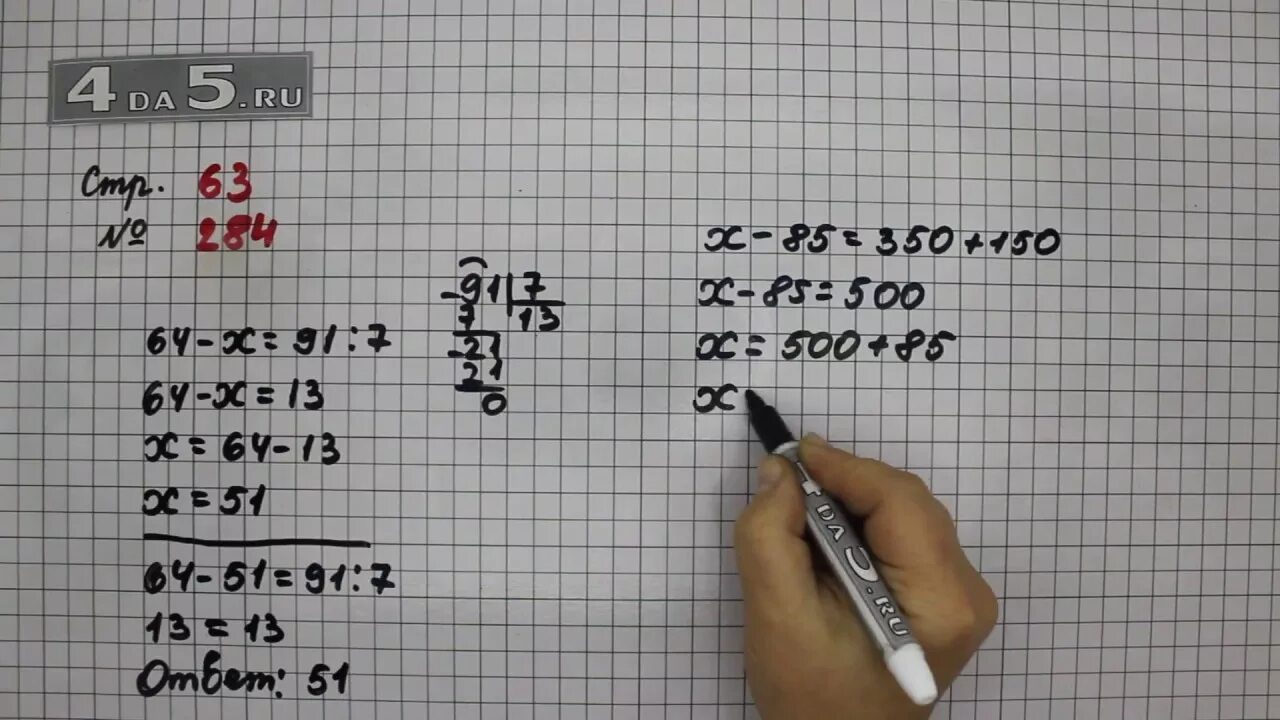 4 DA 5.RU
Стр. 63
№ 284
64 - x = 91 : 7
64 - x = 13
x = 64 - 13
x = 51
64 - 51 = 91 : 7
13 = 13
Ответ: 51
- 91 | 7
7 13
- 21
21
0
x - 85 = 350 + 150
x - 85 = 500
x = 500 + 85
x
4 DA 5.RU